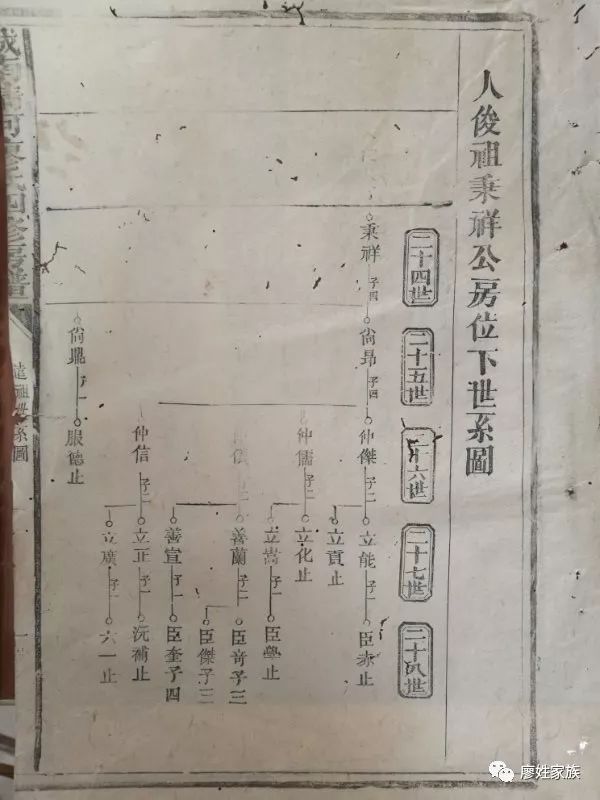 人俊祖秉祥公房位下世系圖
二十四世
二十五世
二十六世
二十七世
二十八世
秉祥 子四
尚昂 子四
仲傑 子二
立能 子一
臣赤止
立貢止
仲儒 子二
立化止
立嵩 子一
臣學止
仲
善蘭 子二
臣奇子三
臣傑子三
善宣 子一
臣奎子四
仲信 子二
立正 子一
沅補止
立廣 子一
六一止
尚鼎 子一
服德止
四修房譜
遠祖世系圖
廖姓家族